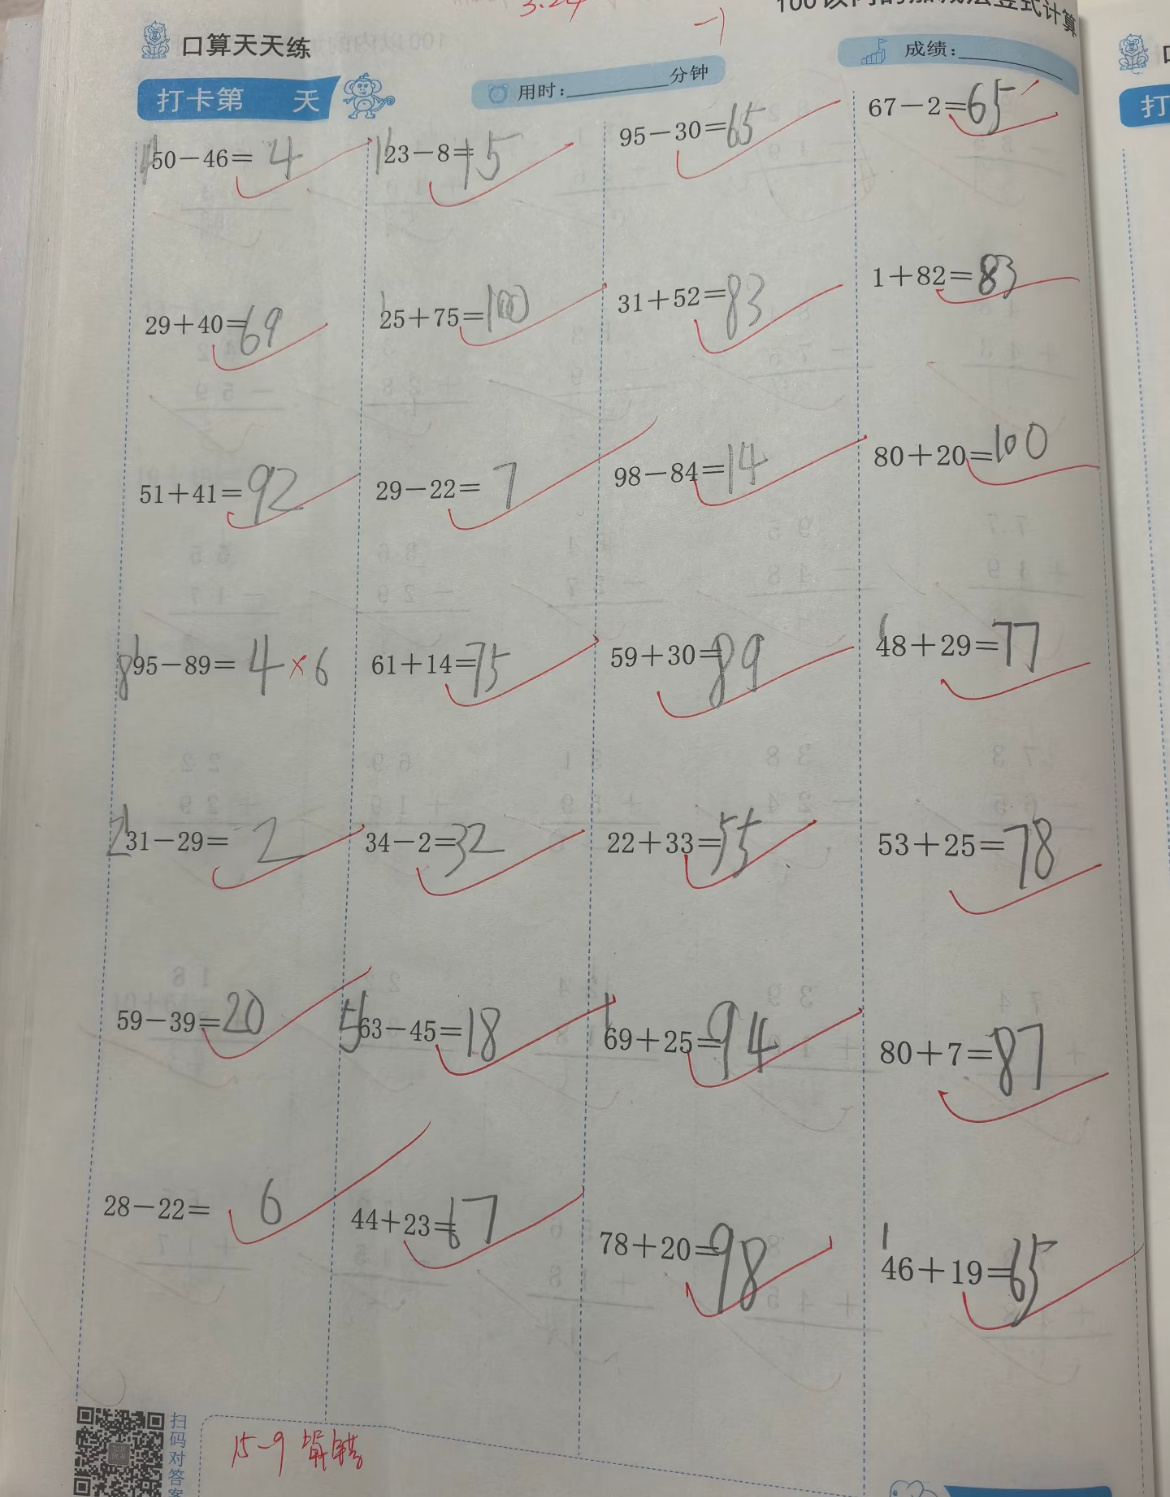 3.24
-1
100以内的加减法竖式计算
口算天天练
打卡第 天
用时:________分钟
成绩:________
50-46=4
23-8=15
95-30=65
67-2=65
29+40=69
25+75=100
31+52=83
1+82=83
51+41=92
29-22=7
98-84=14
80+20=100
95-89=4×6
61+14=75
59+30=89
48+29=77
31-29=2
34-2=32
22+33=55
53+25=78
59-39=20
63-45=18
69+25=94
80+7=87
28-22=6
44+23=67
78+20=98
46+19=65
扫码对答案
15-9 算错
打